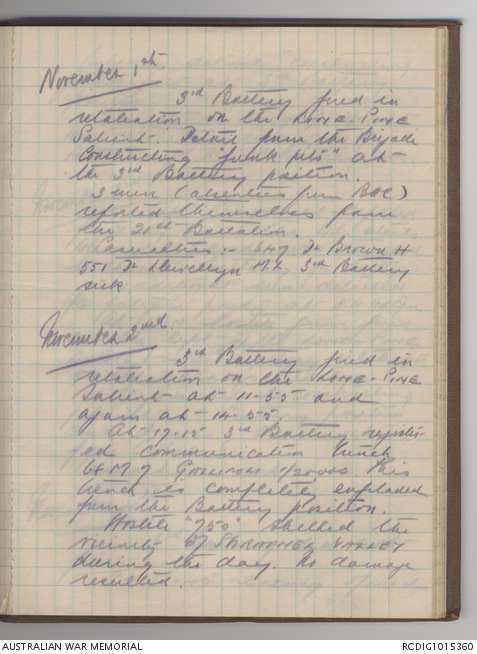 November 1st.
3rd Battery fired in
retaliation on the LONE-PINE
Salient. Detail from the Brigade
constructing "funk pits" at
the 3rd Battery position.
3 men (absentees from BAC)
reported themselves from
the 21st Battalion.
Casualties:- 647 Dr Brown H
551 Dr Llewellyn 3rd Battery
sick
November 2nd.
3rd Battery fired in
retaliation on the LONE-PINE
Salient at 11-55 and
again at 14-55.
At 17-15 3rd Battery register-
ed communication trench
1/20000 This
trench is completely enfiladed
from the Battery position.
Hostile "75s" shelled the
vicinity of SHRAPNEL VALLEY
during the day. No damage
resulted.
AUSTRALIAN WAR MEMORIAL
RCDIG1015360